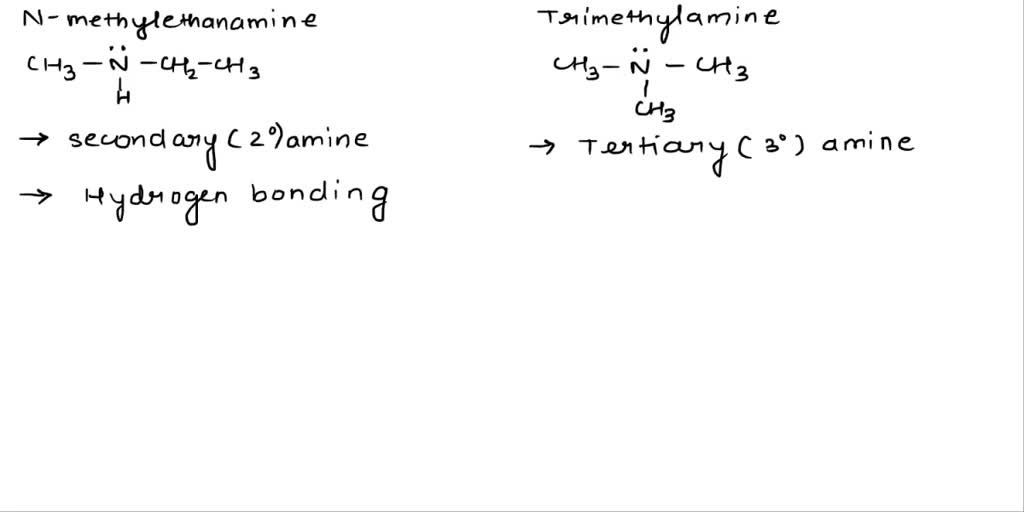 N-methylethanamine
CH3 – N̈ – CH2 – CH3
|
H
→ secondary (2°) amine
→ Hydrogen bonding
Trimethylamine
CH3 – N̈ – CH3
|
CH3
→ Tertiary (3°) amine